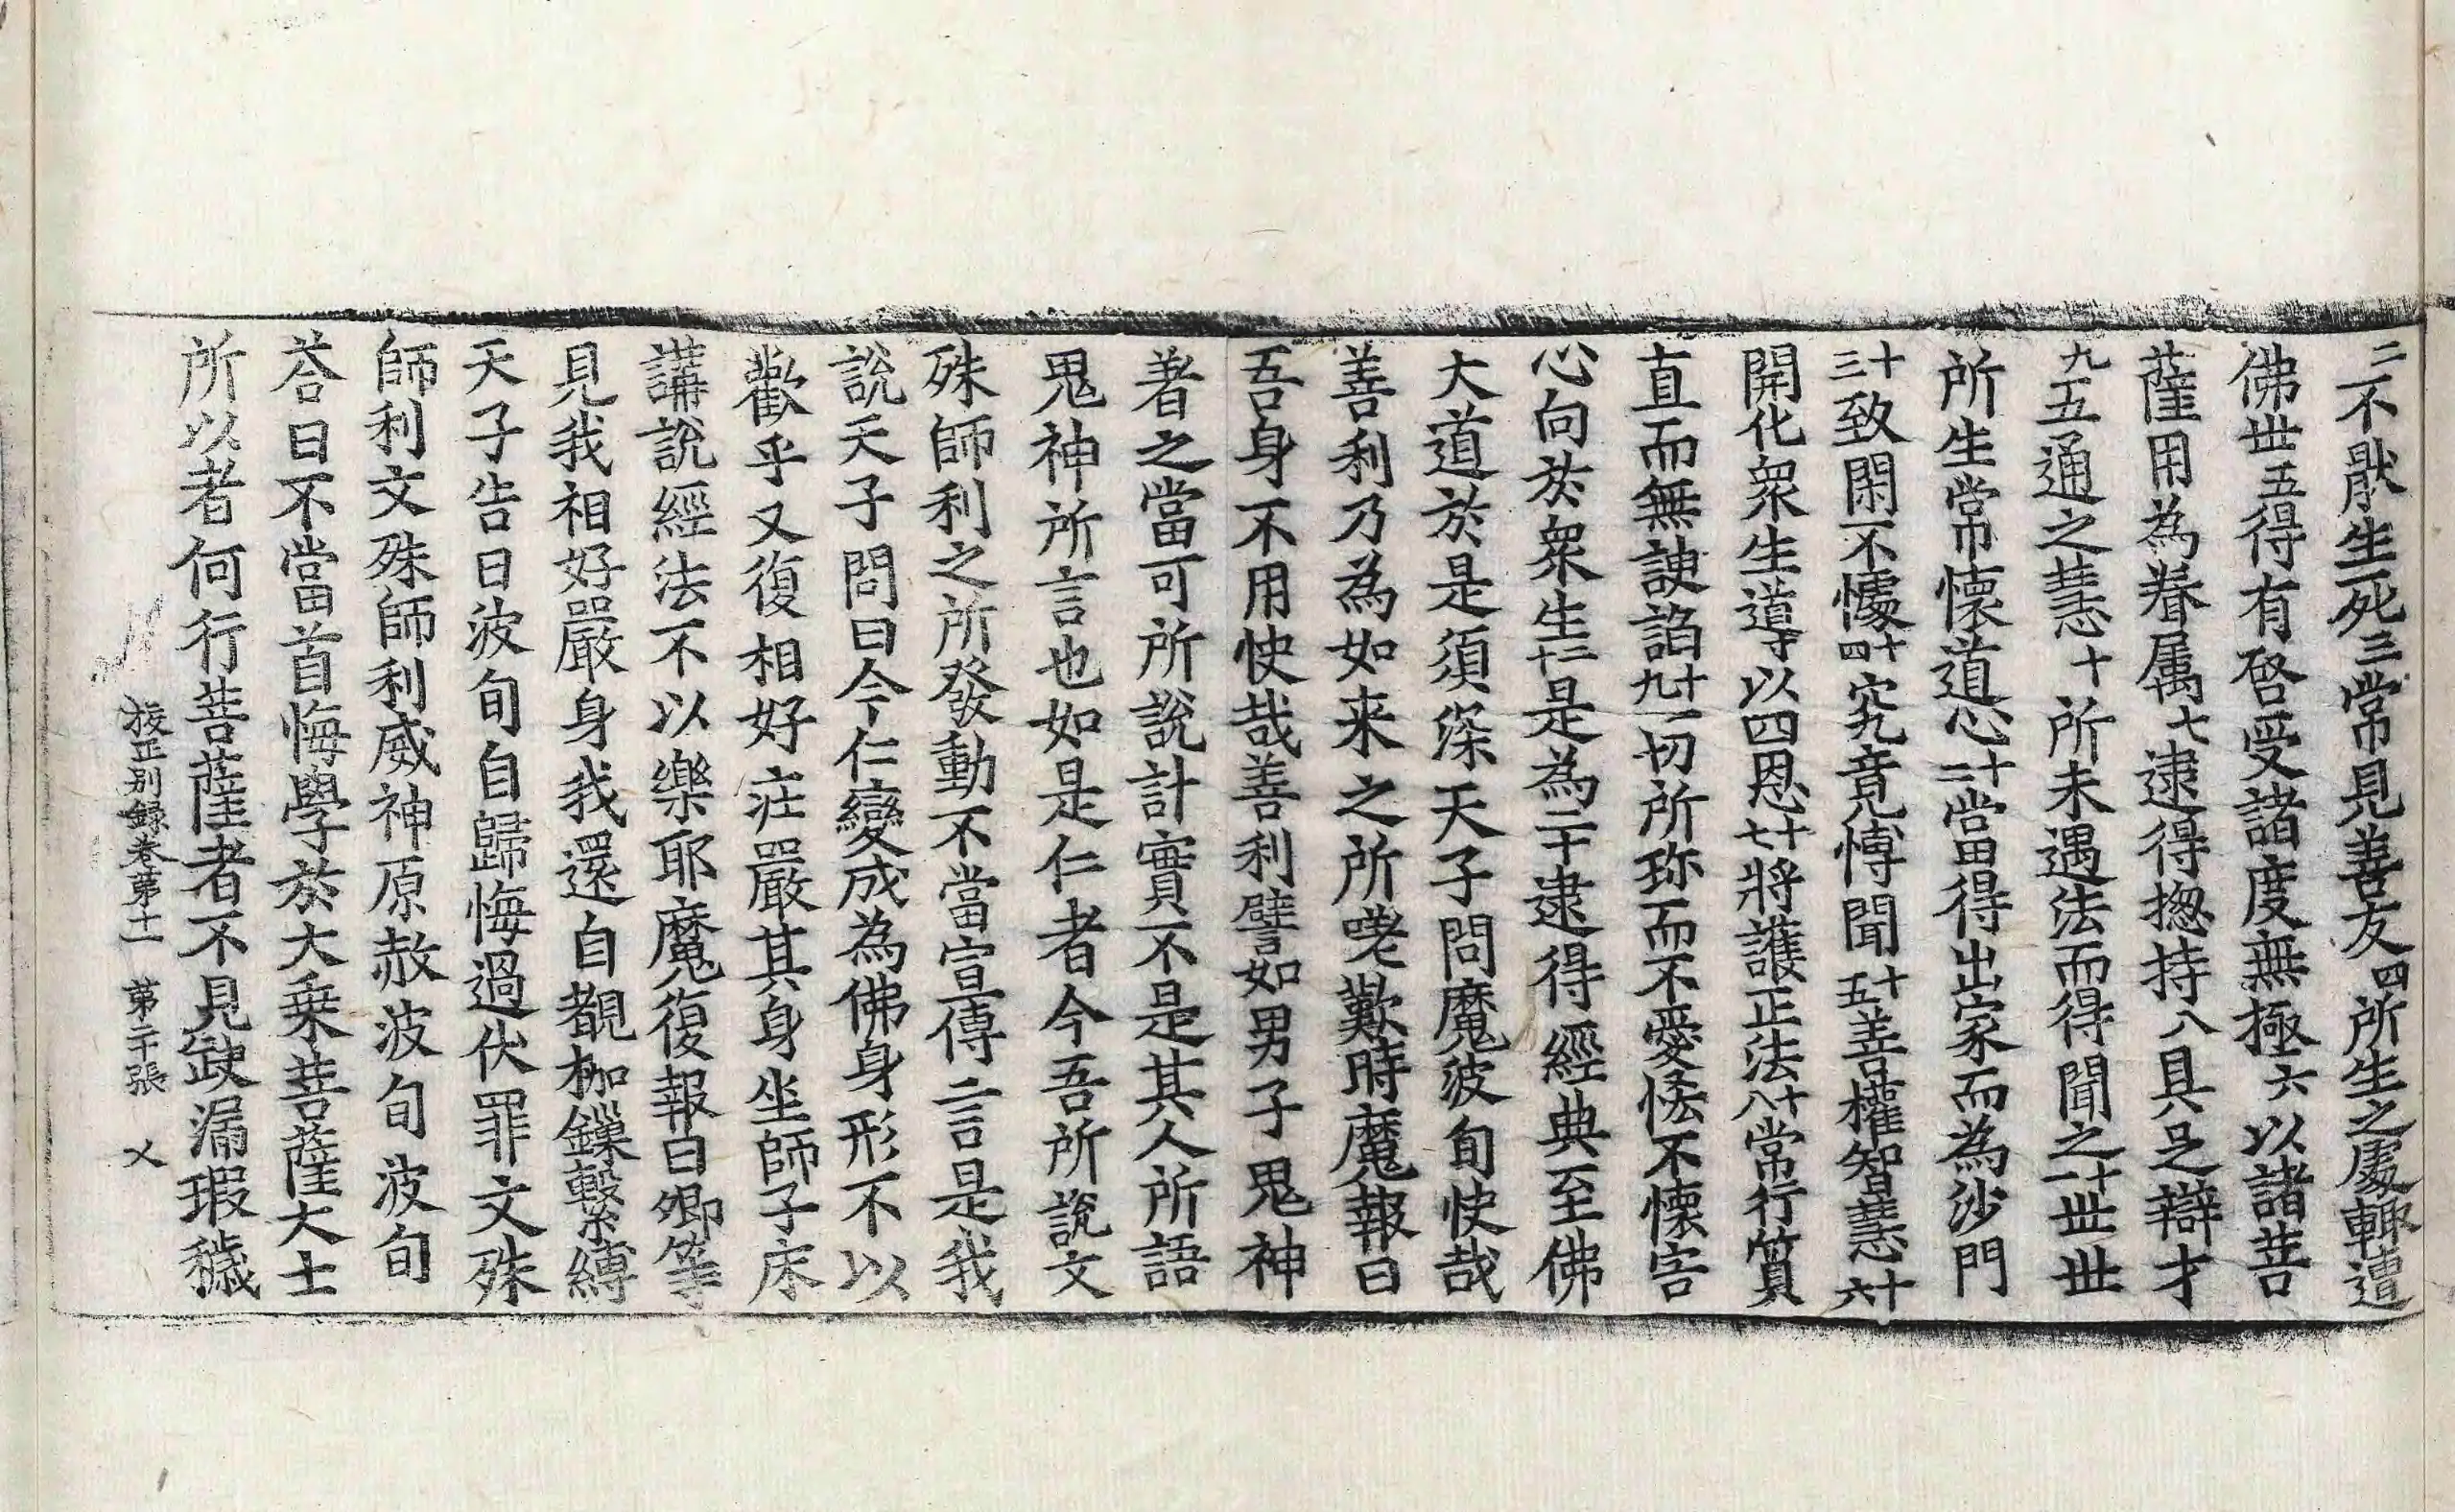 二不猒生死三常見善友四所生之處輙遭
佛世五得有啓受諸度無極六以諸菩
薩用為眷属七逮得揔持八具足辯才
九五通之慧十所未遇法而得聞之十一世世
所生常懷道心十二當得出家而為沙門
十三致閑不懅十四究竟博聞十五善權智慧十六
開化衆生道等以四恩十七將護正法十八常行質
直而無諛諂十九一切所珎而不愛悋不懷害
心向於衆生二十是為二十逮得經典至佛
大道於是須深天子問魔波旬快哉
善利乃為如来之所嗟歎時魔報曰
吾身不用快哉善利譬如男子鬼神
著之當可所說計實不是其人所語
鬼神所言也如是仁者今吾所說文
殊師利之所發動不當宣傳二言是我
說天子問曰今仁變成為佛身形不以
歡乎又復相好庄嚴其身坐師子床
講說經法不以樂耶魔復報曰卿等
見我相好嚴身我還自覩枷鏁繫縛
天子告曰波旬自歸悔過伏罪文殊
師利文殊師利威神原赦波旬波旬
荅曰不當首悔學於大乗菩薩大士
所以者何行菩薩者不見缺漏瑕穢
挍正别録卷第十一 第二十張 乂